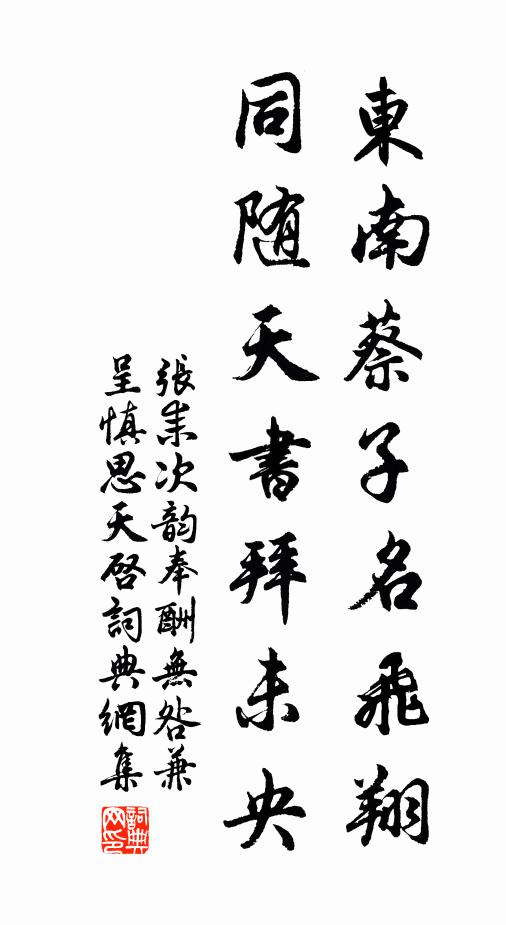 東南蔡子名飛翔
同随天書拜未央
張耒次韵奉酬無咎兼
呈慎思天啓詞典網集
詞典網印